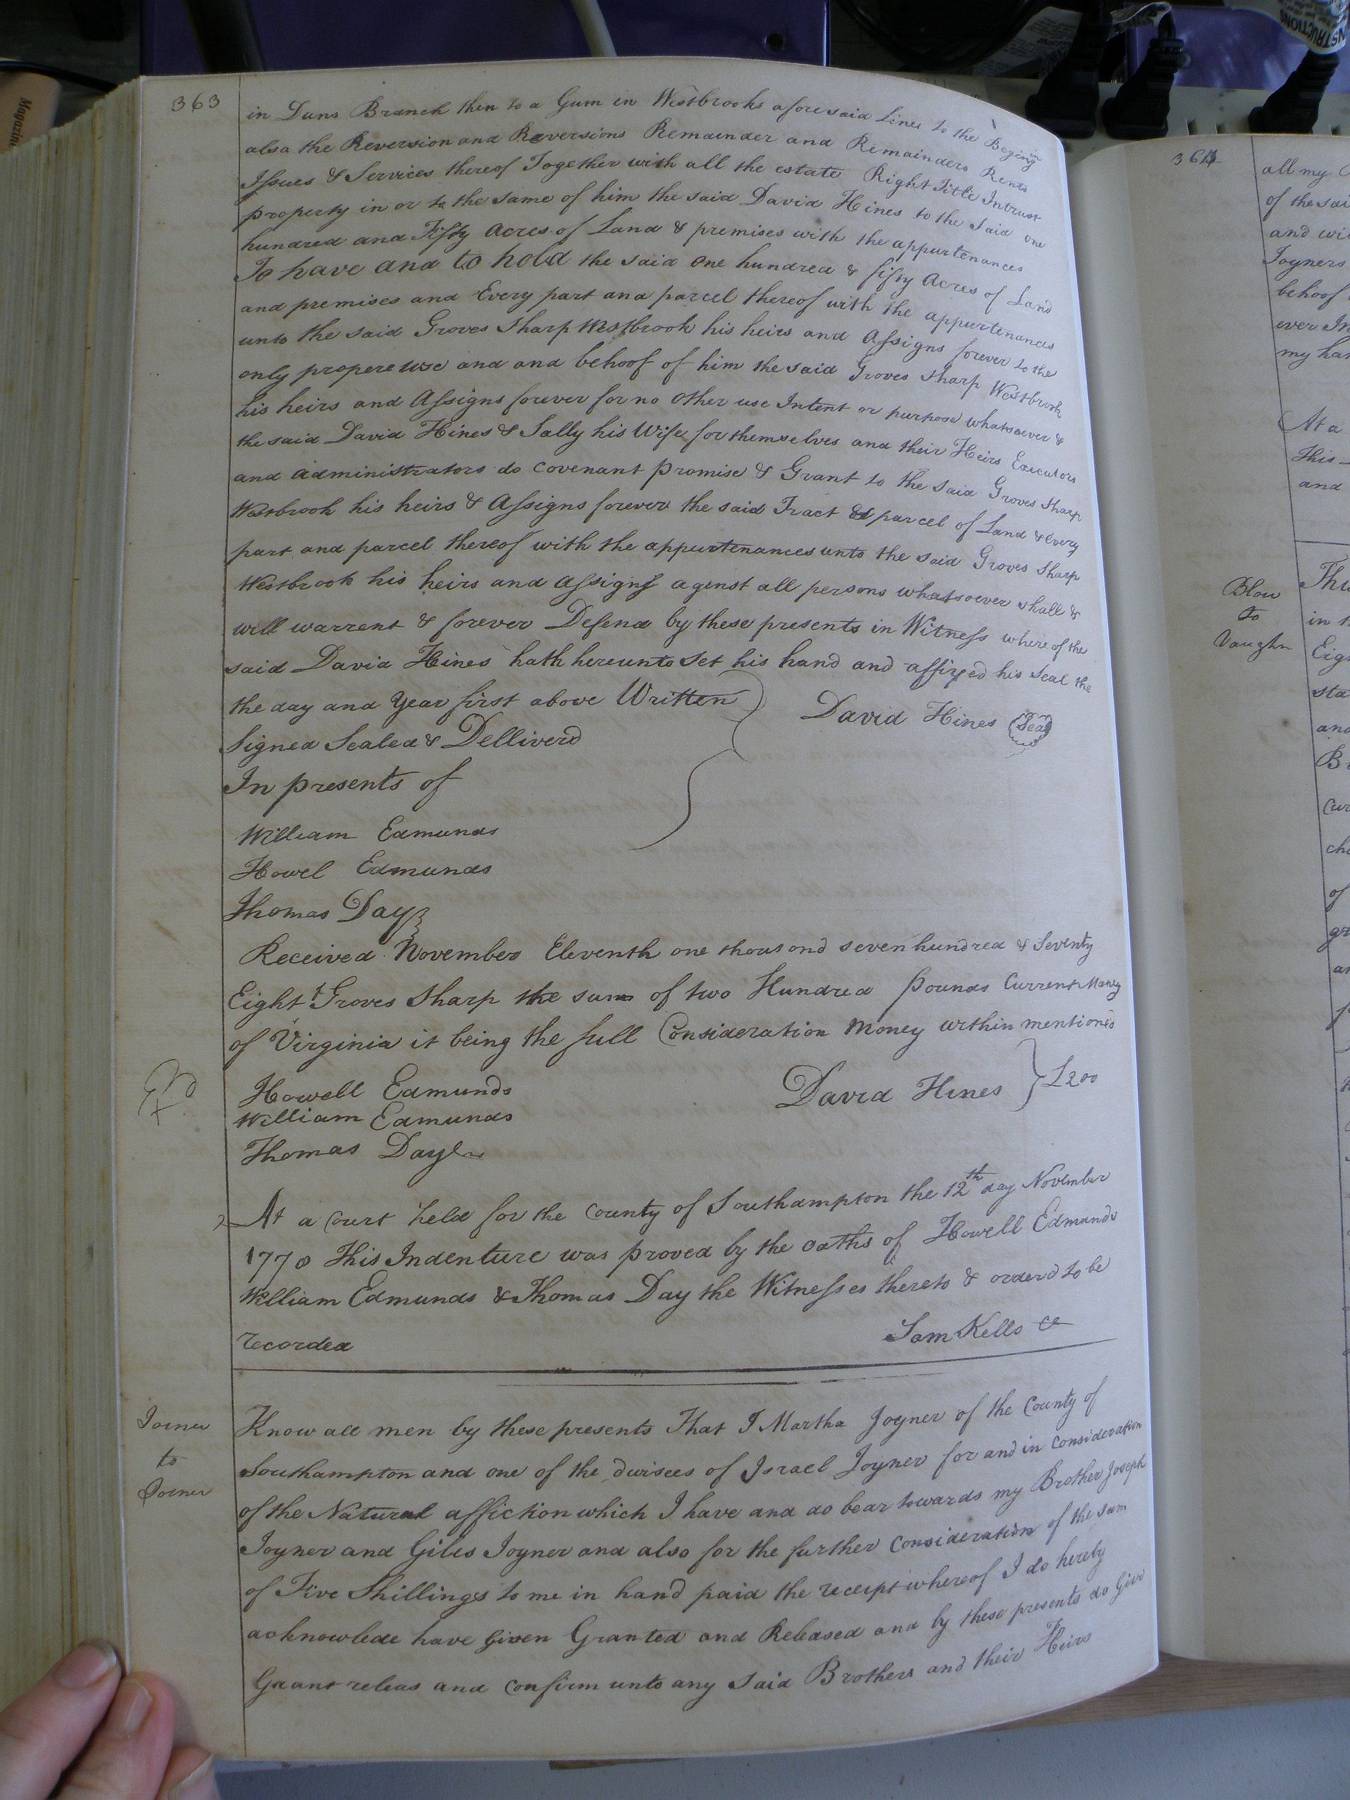 363
in Duns Branch then to a Gum in Westbrooks aforesaid Lines to the Begining
also the Reversion and Reversions Remainder and Remainders Rents
Issues & Services thereof Together with all the estate Right Title Intrust
property in or to the same of him the said David Hines to the said one
hundred and Fifty Acres of Land & premises with the appurtenances
To have and to hold the said one hundred & fifty Acres of Land
and premises and Every part and parcel thereof with the appurtenances
unto the said Groves Sharp Westbrook his heirs and Assigns forever to the
only propere use and and behoof of him the said Groves Sharp Westbrook
his heirs and Assigns forever for no other use Intent or purpose whatsoever &
the said David Hines & Sally his Wife for themselves and their Heirs Executors
and administrators do covenant promise & Grant to the said Groves Sharp
Westbrook his heirs & Assigns forever the said Tract & parcel of Land & every
part and parcel thereof with the appurtenances unto the said Groves Sharp
Westbrook his heirs and assigns aganst all persons whatsoever shall &
will warrent & forever Defend by these presents in Witness where of the
said David Hines hath hereunto set his hand and affixed his seal the
the day and year first above Written
David Hines Seal
Signed Sealed & Delliverd
In presents of
William Edmunds
Howel Edmunds
Thomas Day
Received November Eleventh one thousond seven hundred & Seventy
Eight Groves Sharp the sum of two Hundred pounds Current Money
of Virginia it being the full Consideration Money within mentiond
Howell Edmunds
David Hines } £200
William Edmunds
Thomas Day
At a court held for the county of Southampton the 12th day November
1778 This Indenture was proved by the oaths of Howell Edmunds
William Edmunds & Thomas Day the Witnesses thereto & orderd to be
recorded
Sam Kello
Joiner
to
Joiner
Know all men by these presents That I Martha Joyner of the County of
Southampton and one of the divisees of Israel Joyner for and in consideration
of the Natural affiction which I have and do bear towards my Brother Joseph
Joyner and Giles Joyner and also for the further Consideration of the sum
of Five Shillings to me in hand paid the receipt whereof I do hereby
acknowlede have Given Granted and Released and by these presents do Give
Grant releas and confirm unto any said Brothers and their Heirs
364
all my
of the sai
and wi
Joyners
behoof
ever In
my han
At a
This
and
Blow
to
Vaughn
This
in
Eigh
sta
and
cur
ch
of
gr
an
Magazin